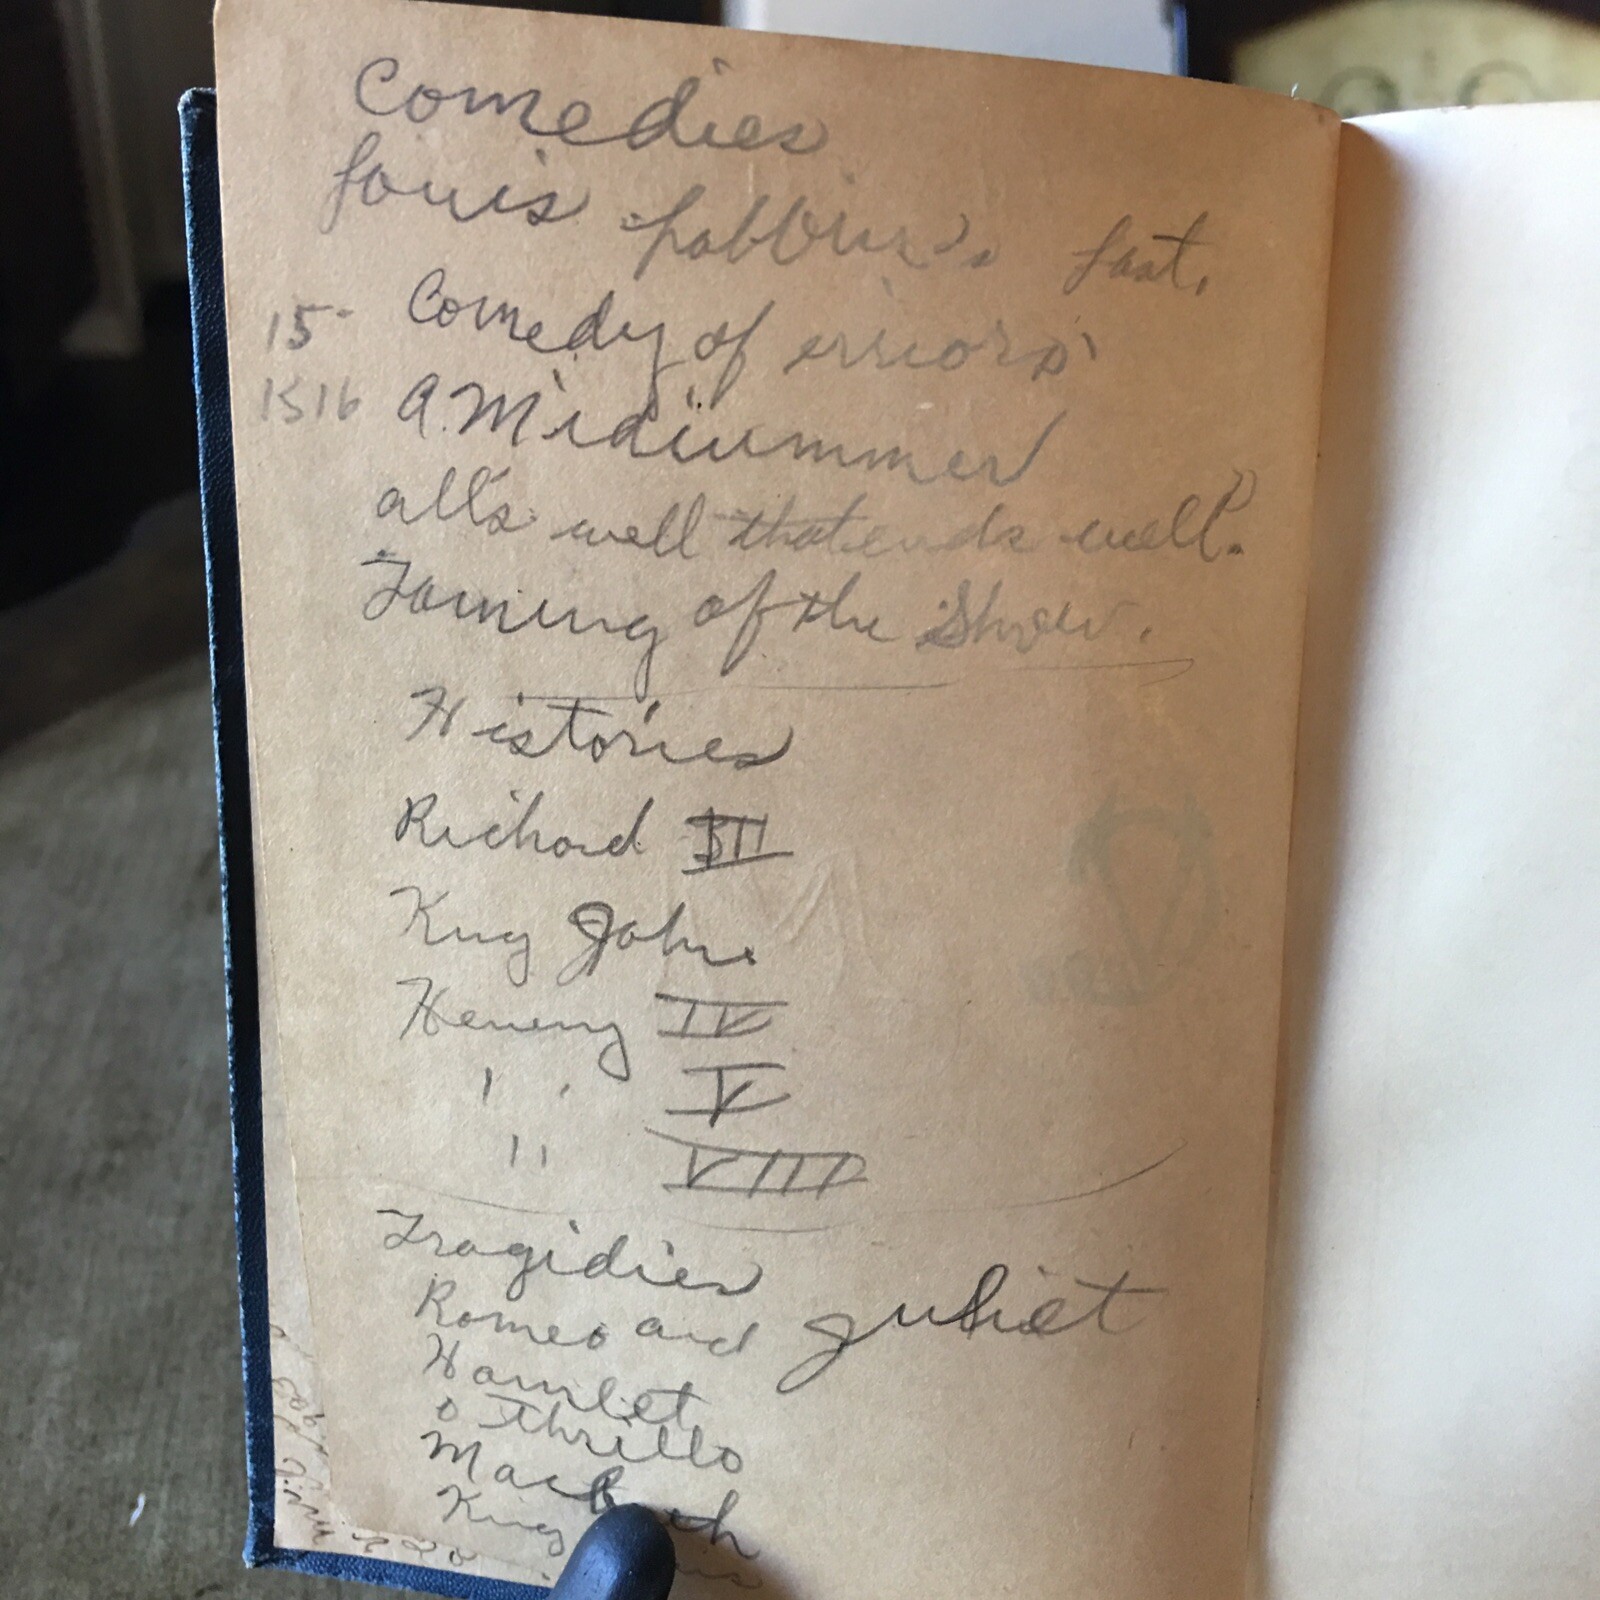 Comedies
Louis Robbins's Last.
15 Comedy of errors
1516 A Midsummer
all's well that ends well.
Taming of the Shrew.
Histories
Richard III
King John
Henery IV
" V
" VIII
Tragidies
Romeo and Juliet
Hamlet
Othrello
Macbeth
King